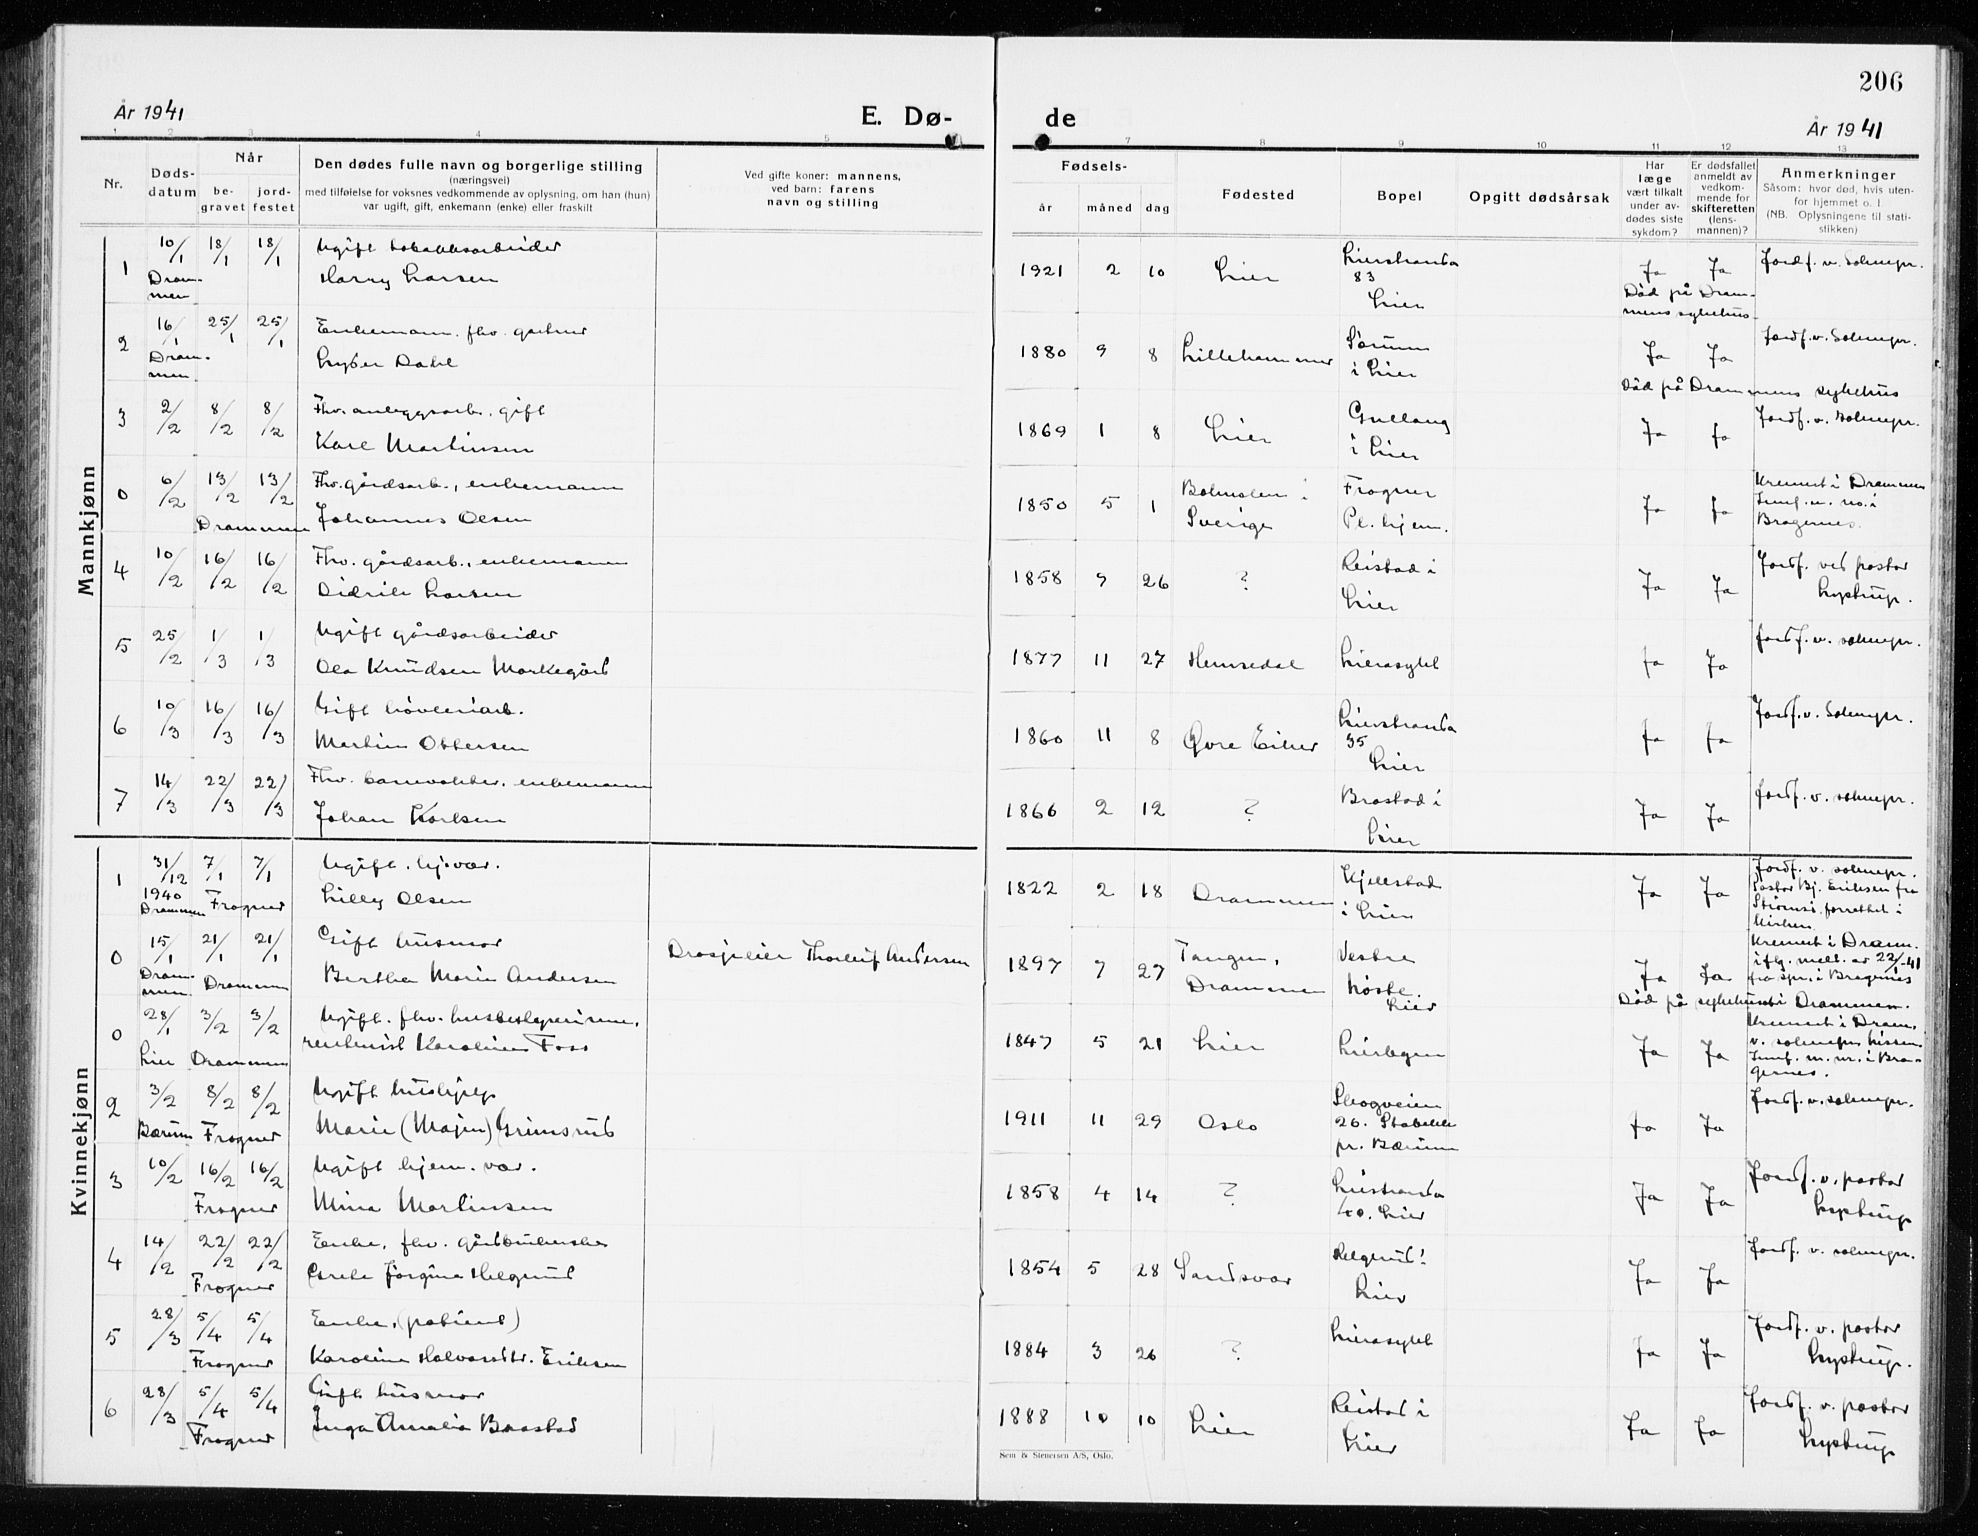 206
År 1941
E. Dø-
de
År 1941
1 2 3 4 5 7 8 9 10 11 12 13
Nr.
Døds-
datum
Når
be-
gravet
jord-
festet
Den dødes fulle navn og borgerlige stilling
(næringsvei)
med tilføielse for voksnes vedkommende av oplysning, om han (hun)
var ugift, gift, enkemann (enke) eller fraskilt
Ved gifte koner: mannens,
ved barn: farens
navn og stilling
Fødsels-
år måned dag
Fødested
Bopel
Opgitt dødsårsak
Har
læge
vært tilkalt
under av-
dødes siste
sykdom?
Er dødsfallet
anmeldt av
vedkom-
mende for
skifteretten
(lens-
mannen)?
Anmerkninger
Såsom: hvor død, hvis uten-
for hjemmet o. l.
(NB. Oplysningene til stati-
stikken)
Mannkjønn
1 10/1 18/1 18/1 Ugift tobakksarbeider
Drammen Harry Larsen
1921 2 10 Lier Lierstranda 83 Lier Ja Ja Jordf. v. solnepr.
Død på Drammens sykehus
2 16/1 25/1 25/1 Enkemann. fhv. gartner
Drammen Dahl
1880 9 8 Lillehammer Sørum i Lier Ja Ja Jordf. v. solnepr.
Død på Drammens sykehus
3 2/2 8/2 8/2 Fhv. anleggsarb. gift
Karl Martinsen
1869 1 8 Lier Gullaug i Lier Ja Ja Jordf. v. solnepr.
0 6/2 13/2 13/2 Fhv. gårdsarb., enkemann
Drammen Johannes Olsen
1850 5 1 i Sverige Frogner Pl. hjem. Ja Ja Kremert i Drammen
Bragernes.
4 10/2 16/2 16/2 Fhv. gårdsarb., enkemann
Didrik Larsen
1858 9 26 ? Reistad i Lier Ja Ja Jordf. ved pastor
Lystrup.
5 25/2 1/3 1/3 Ugift gårdsarbeider
Ola Knudsen Markegård
1877 11 27 Hemsedal Lierasylet Ja Ja Jordf. v. solnepr.
6 10/3 16/3 16/3 Gift høvleriarb.
Martin Ottersen
1860 11 8 Øvre Eiker Lierstranda 35 Lier Ja Ja Jordf. v. solnepr.
7 14/3 22/3 22/3 Fhv. banevokter, enkemann
Johan Karlsen
1866 2 12 ? Brastad i Lier Ja Ja Jordf. v. solnepr.
Kvinnekjønn
1 31/12 7/1 7/1 Ugift. hj.vær.
1940 Drammen Frogner Lilly Olsen
1822 2 18 Drammen Kjellstad i Lier Ja Ja Jordf. v. solnepr.
Pastor Bj. Eriksen fra
Strømsø forrettet i
kirken.
0 15/1 21/1 21/1 Gift husmor Drosjeeier Thorleif Andersen
Drammen Drammen Berthe Marie Andersen
1897 7 27 Tangen, Drammen Vestre Høste Lier Ja Ja Kremert i Dramm.
iflg. meld. av 22/1-41
fra spr. i Bragernes
Død på sykehuset i Drammen.
0 28/1 3/2 3/2 Ugift. fhv. husbestyrerinne,
Lier Drammen rentenist Karoline Foss
1847 5 21 Lier Lierbyen Ja Ja Kremert i Dram.
v. solnepr.
i Bragernes.
2 3/2 8/2 8/2 Ugift hushjelp
Bærum Frogner Marie (Majen) Grimsrud
1911 11 29 Oslo Skogveien 26. Stabekk pr. Bærum Ja Ja Jordf. v. solnepr.
3 10/2 16/2 16/2 Ugift hjem. vær.
Frogner Mina Martinsen
1858 4 14 ? Lierstranda 40. Lier Ja Ja Jordf. v. pastor
Lystrup
4 14/2 22/2 22/2 Enke, fhv. gårdbrukerske
Frogner Grete Jørgine Helgerud
1854 5 28 Sandsvær Helgerud i Lier Ja Ja Jordf. v. solnepr.
5 28/3 5/4 5/4 Enke, (patient)
Frogner Karoline Halvorsdtr. Eriksen
1884 3 26 ? Lierasylet Ja Ja Jordf. v. pastor
Lystrup.
6 28/3 5/4 5/4 Gift husmor
Frogner Inga Amalia Brastad
1888 10 10 Lier Reistad i Lier Ja Ja Jordf. v. pastor
Lystrup
Sem & Stenersen A/S, Oslo.